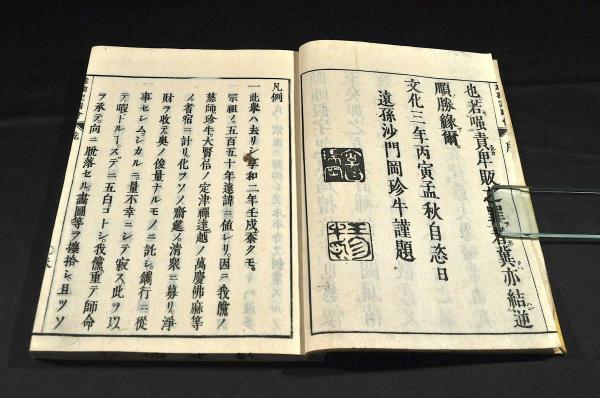 也若嗤責
亦結逆
順勝緣爾
文化三年丙寅孟秋自恣日
遠孫沙門岡珍牛謹題
凡例
一此擧ハ去リシ享和二年壬戌忝クモ
宗祖ノ五百五十年遠諱ニ値レリ因ニ我儕ノ
慕師珍牛大賢信ノ定津禪達越ノ萬慶佛麻等
ノ者宿ニ計リ化ヲソノ齋筵ノ淸衆ニ募リ淨
財ヲ收テ奧ノ俊量ナルモノニ託シ鏤行ニ從
事セシムシカルニ量不幸ニシテ寂ス此ヲ以
テ暇ドルコスデニ五白コトシ我儕重テ師命
ヲ承テ向ニ脫落セル畵圖等ヲ攘拾シ且ツソ